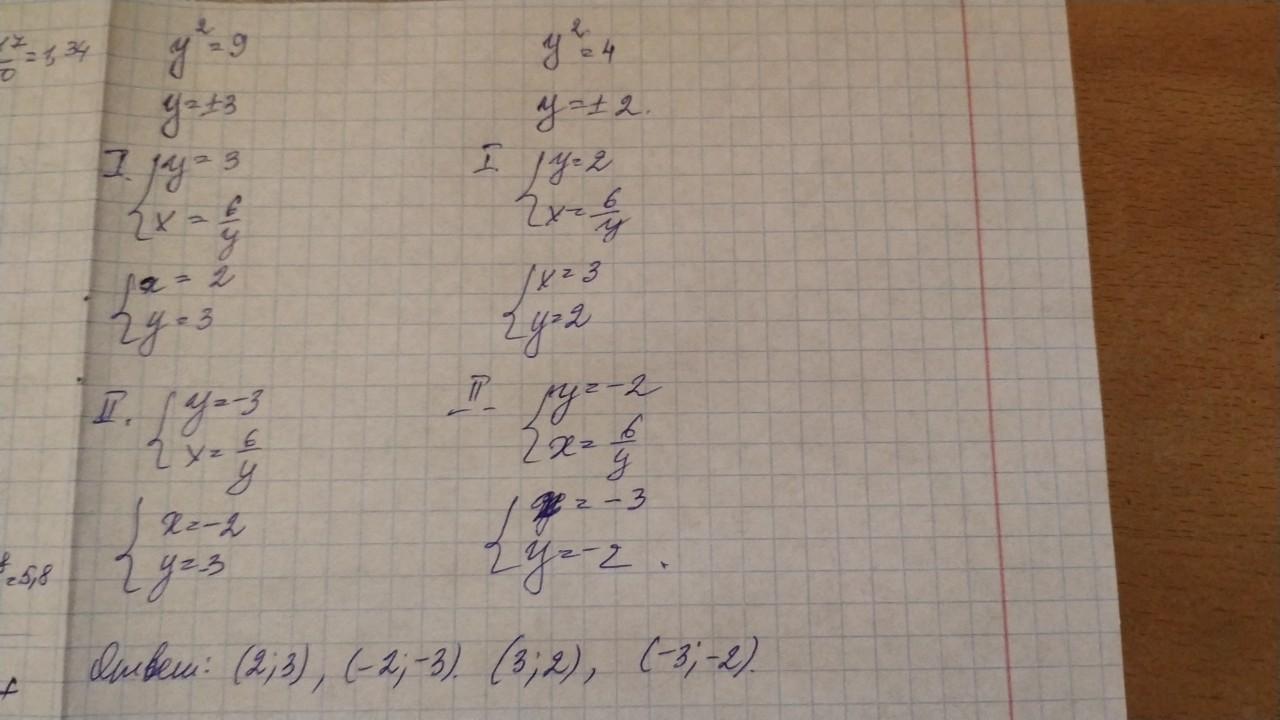 17/0 = 1,34
y² = 9
y = ±3
I. { y = 3
x = 6/y
{ x = 2
y = 3
II. { y = -3
x = 6/y
{ x = -2
y = 3
y² = 4
y = ±2.
I. { y = 2
x = 6/y
{ x = 3
y = 2
II { y = -2
x = 6/y
{ = -3
y = -2.
=5,8
Ответ: (2;3), (-2;-3). (3;2), (-3;-2).